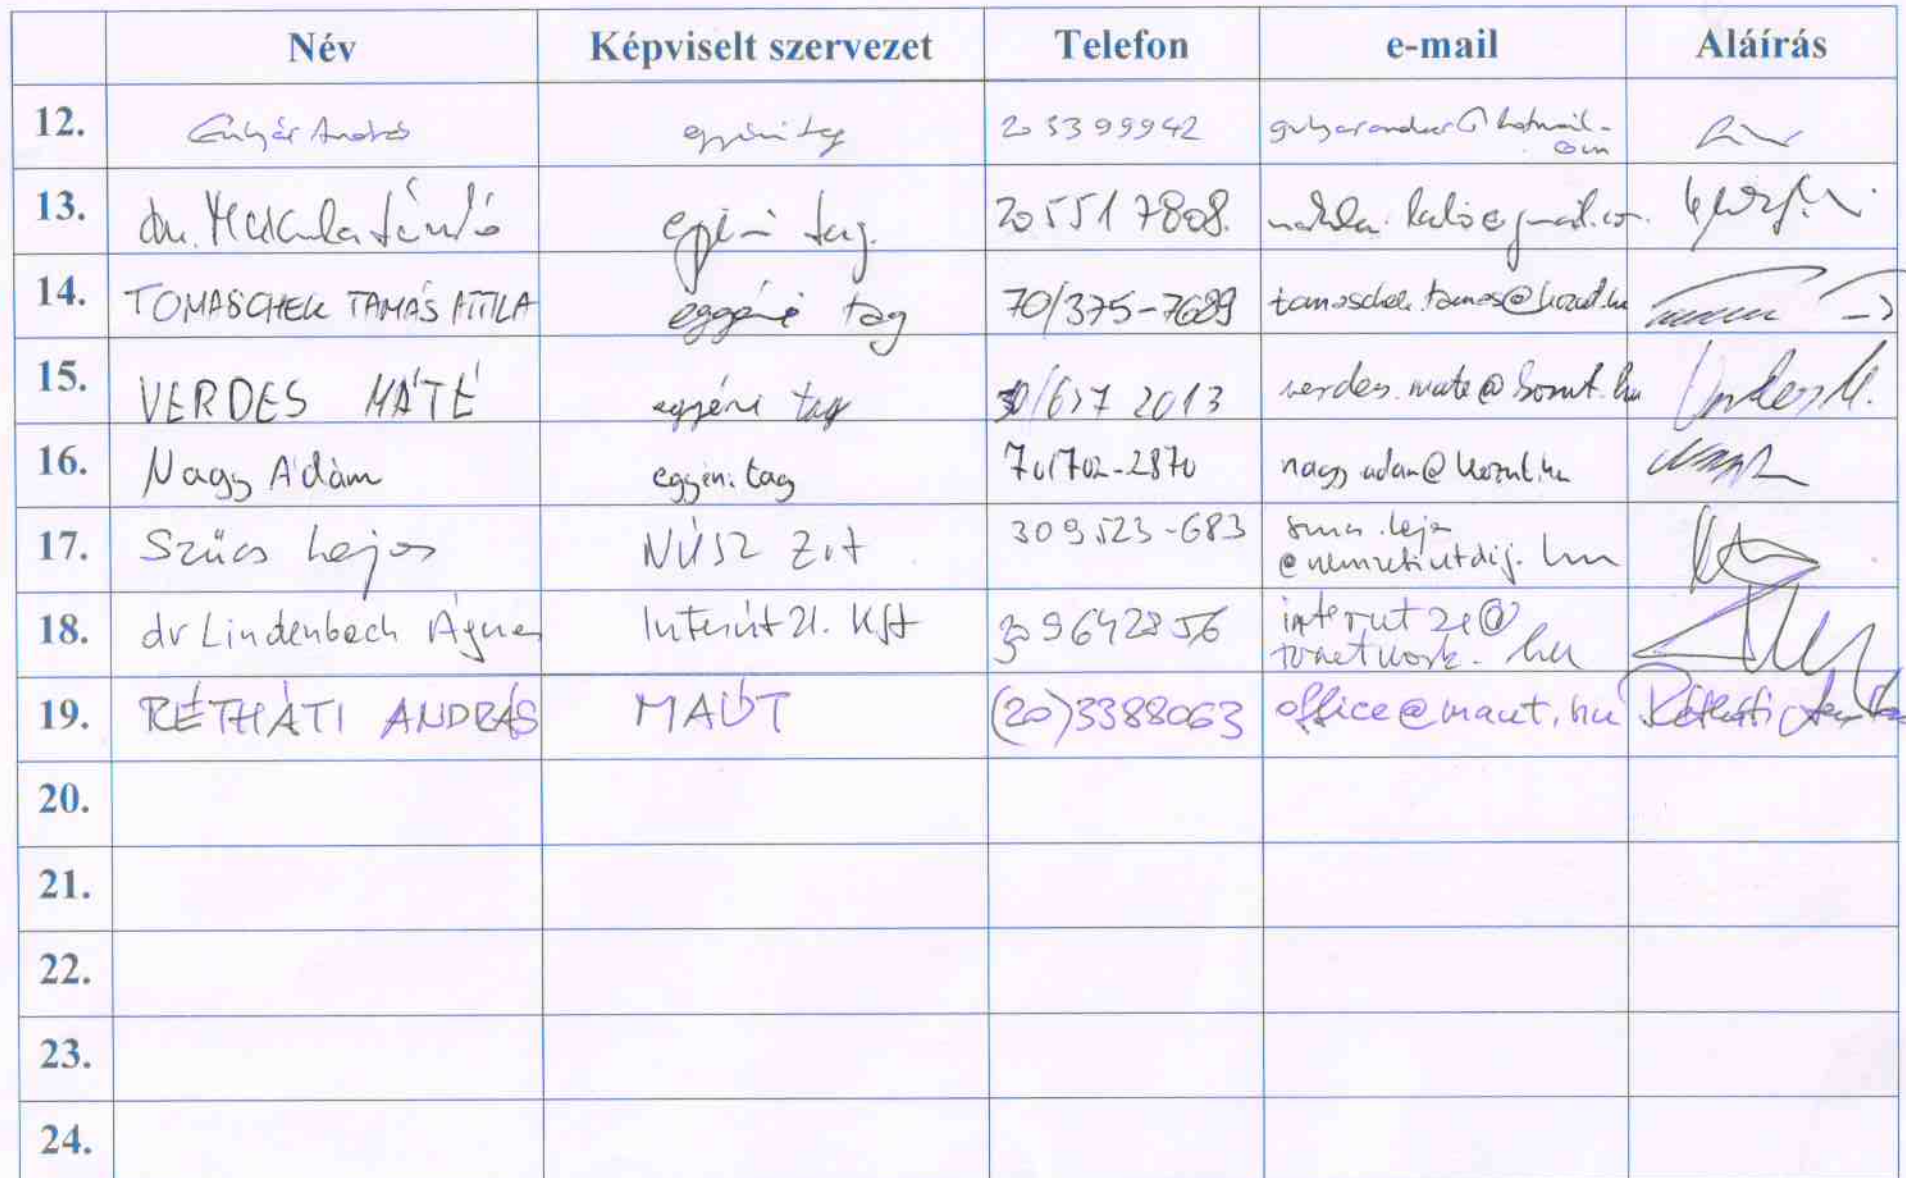 Név Képviselt szervezet Telefon e-mail Aláírás
12. Gulyás András egyéni tag 20 3399942 gulyasandras@hotmail.
com
13. dr. László egyéni tag. 20 551 7808.
14. TOMASCHEK TAMÁS ATTILA egyéni tag 70/375-7689 tomaschek.tamas@kozut.hu
15. VERDES MÁTÉ egyéni tag 30/637 2013 verdes.mate@kozut.hu Verdes M.
16. Nagy Ádám egyéni tag 70/702-2870 nagy.adam@kozut.hu
17. Szűcs Lajos NÚSZ Zrt 309523-683
@nemzetiutdij.hu
18. dr Lindenbach Ágnes Interút 21. Kft 309642856 interut21@
. hu
19. RÉTHÁTI ANDRÁS MAÚT (20)3388063 office@maut.hu Rétháti
20.
21.
22.
23.
24.